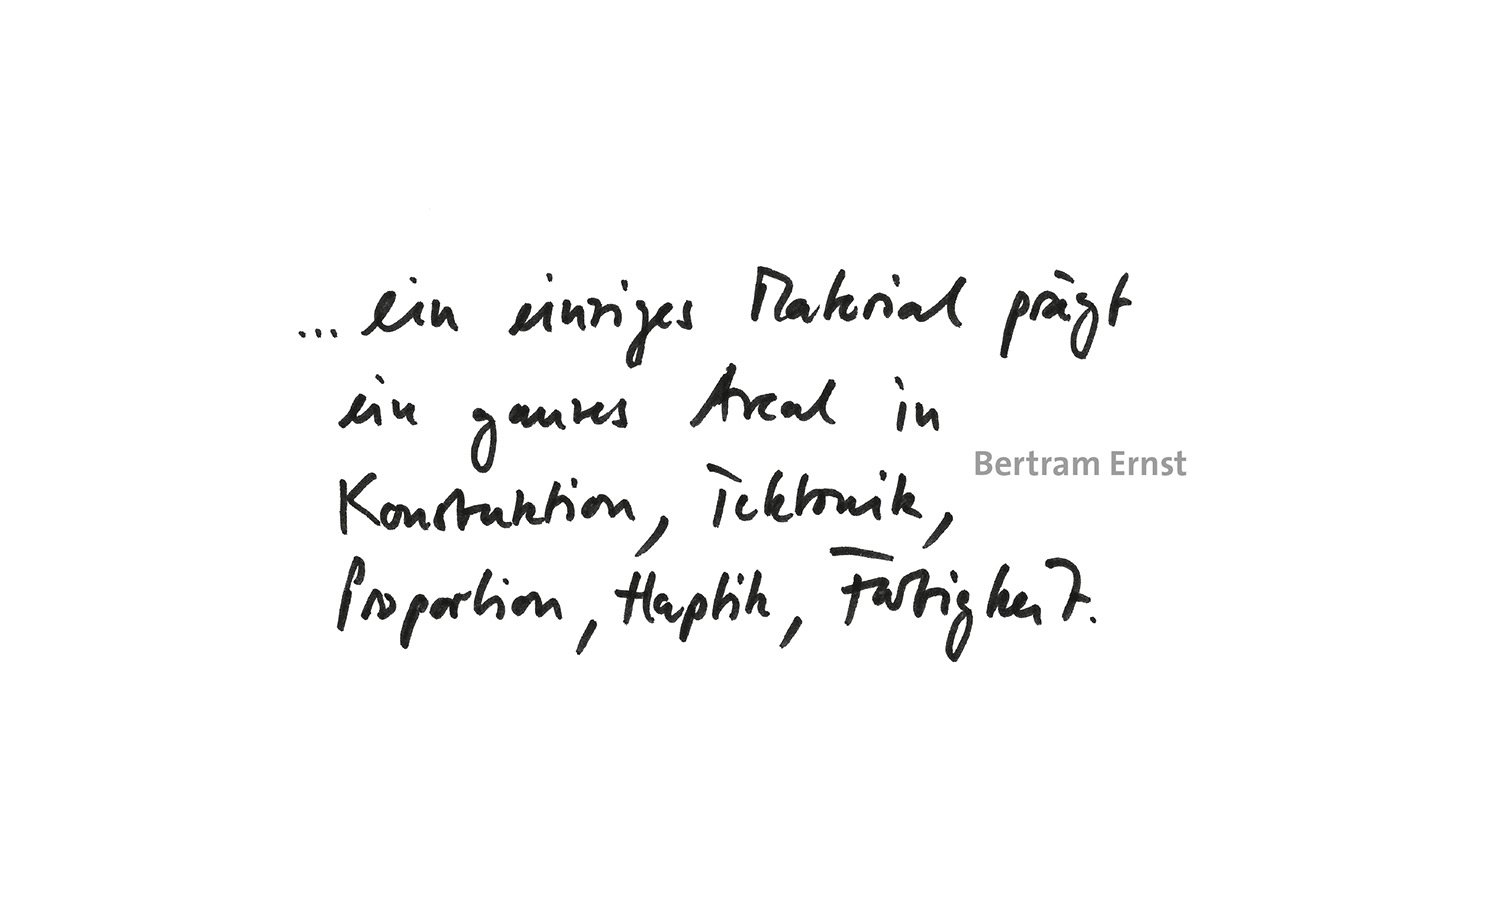 ... ein einziges Material prägt
ein ganzes Areal in
Konstruktion, Tektonik,
Bertram Ernst
Proportion, Haptik, Farbigkeit.